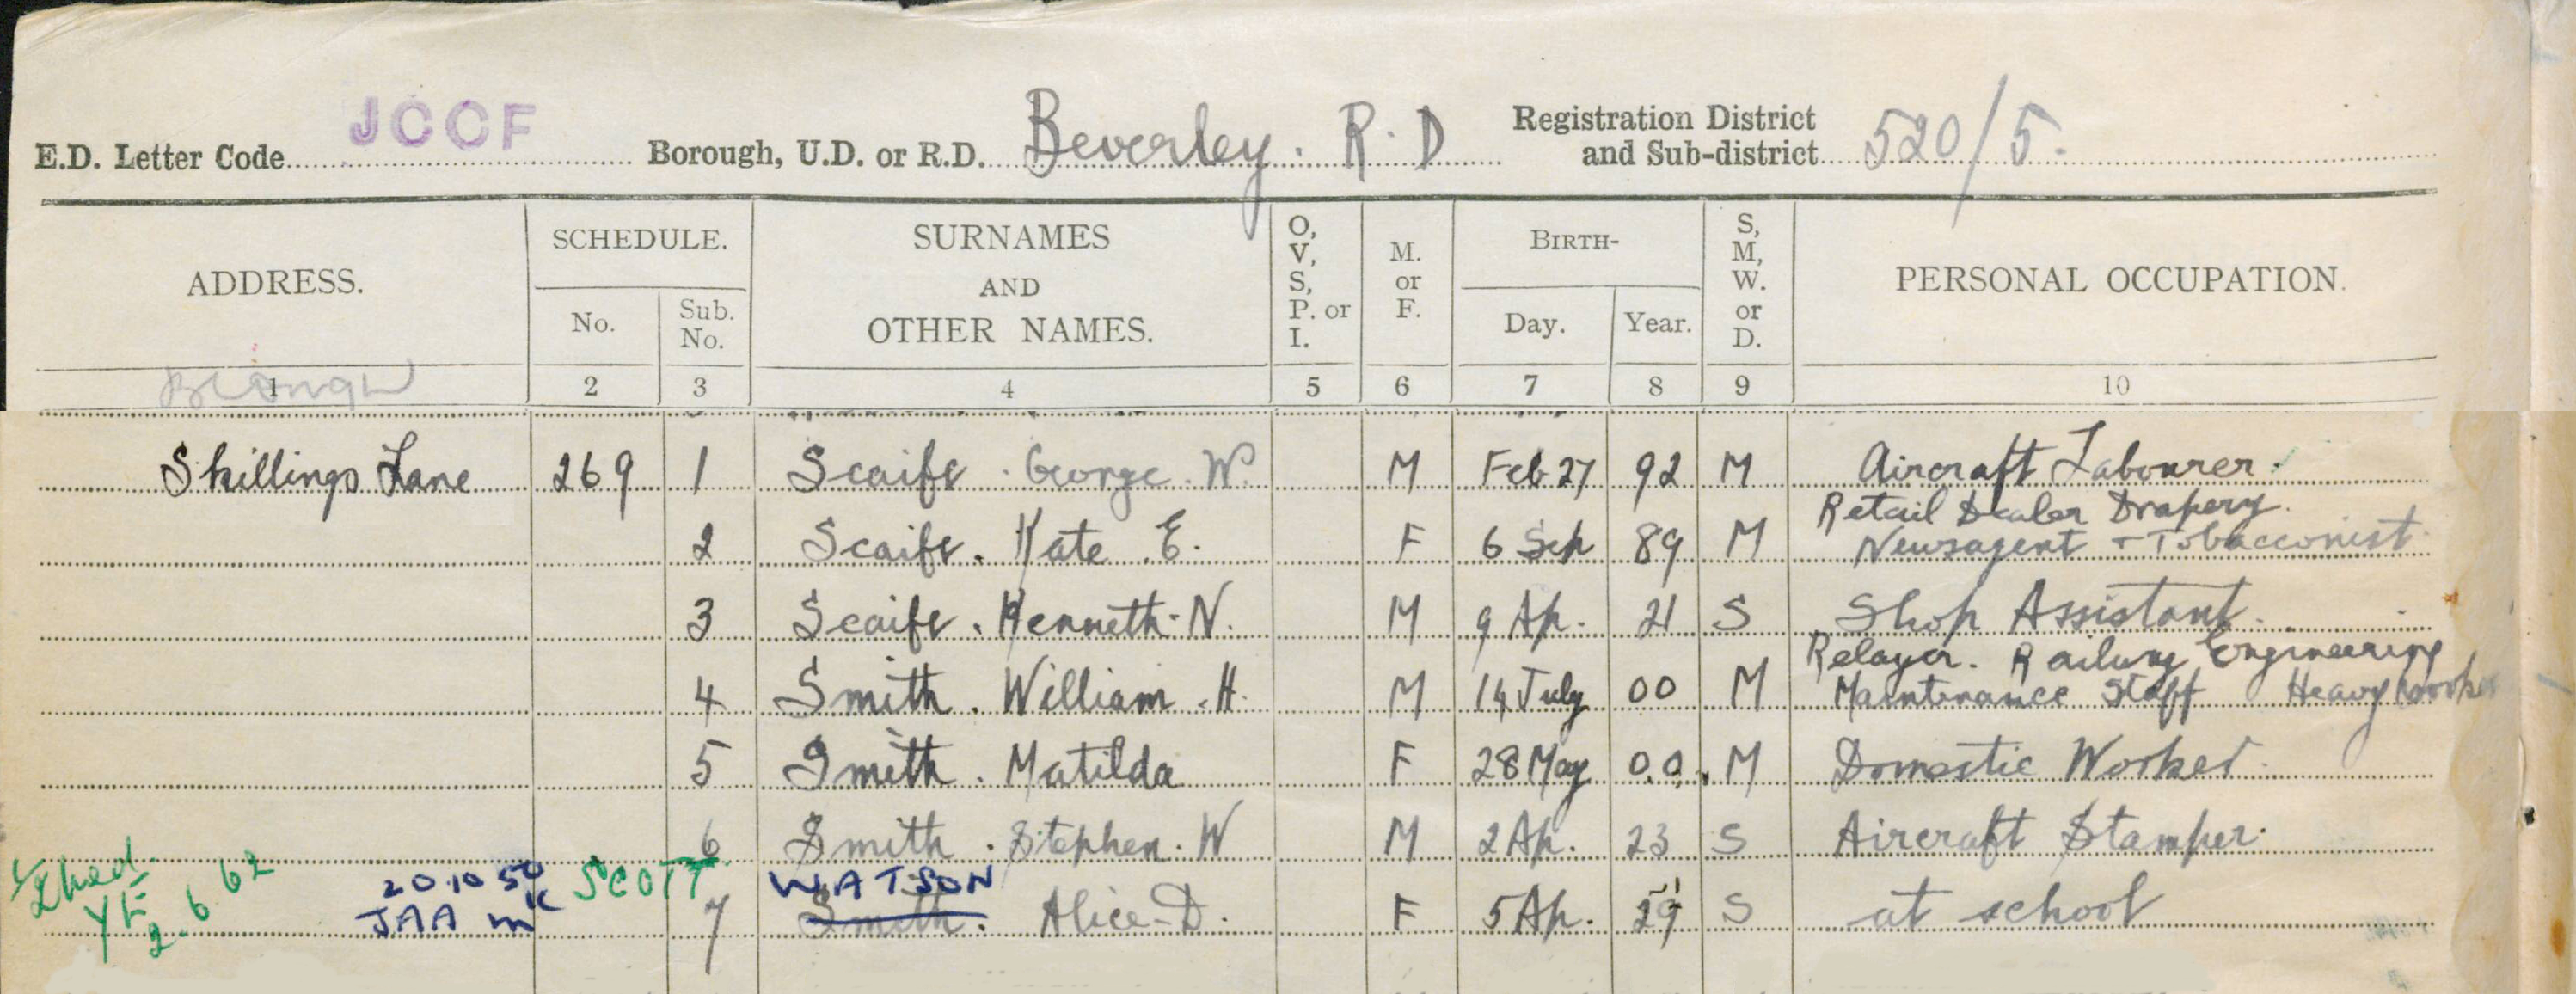 E.D. Letter Code JCCF Borough, U.D. or R.D. Beverley. R. D Registration District and Sub-district 520/5.
ADDRESS. SCHEDULE. No. Sub. No. SURNAMES AND OTHER NAMES. O, V, S, P. or I. M. or F. BIRTH- Day. Year. S, M, W. or D. PERSONAL OCCUPATION.
1 2 3 4 5 6 7 8 9 10
Skillings Lane 269 1 Scaife. George. W. M Feb 27 92 M Aircraft Labourer.
Retail Dealer Drapery.
2 Scaife. Kate. E. F 6 Sep 89 M Newsagent + Tobacconist
3 Scaife. Kenneth. N. M 9 Ap. 21 S Shop Assistant.
Relayer. Railway Engineering
4 Smith. William. H. M 14 July 00 M Maintenance Staff Heavy Worker
5 Smith. Matilda F 28 May 00. M Domestic Worker.
6 Smith. Stephen. W M 2 Ap. 23 S Aircraft Stamper.
20.10.50 SCOTT WATSON
YE 2.6.62 JAA 7 Smith. Alice. D. F 5 Ap. 29 S at school